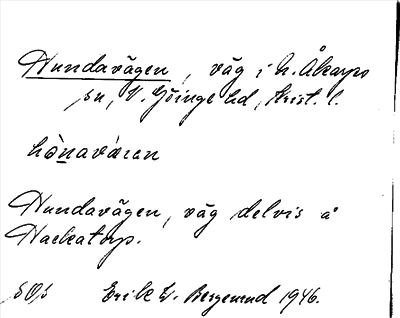 Hundavägen, väg i N. Åkarps
sn, V. Göinge hd, Krist. l.
hònavä́ren
Hundavägen, väg delvis å
Hackatorp.
Erik E. Bergerud 1946.